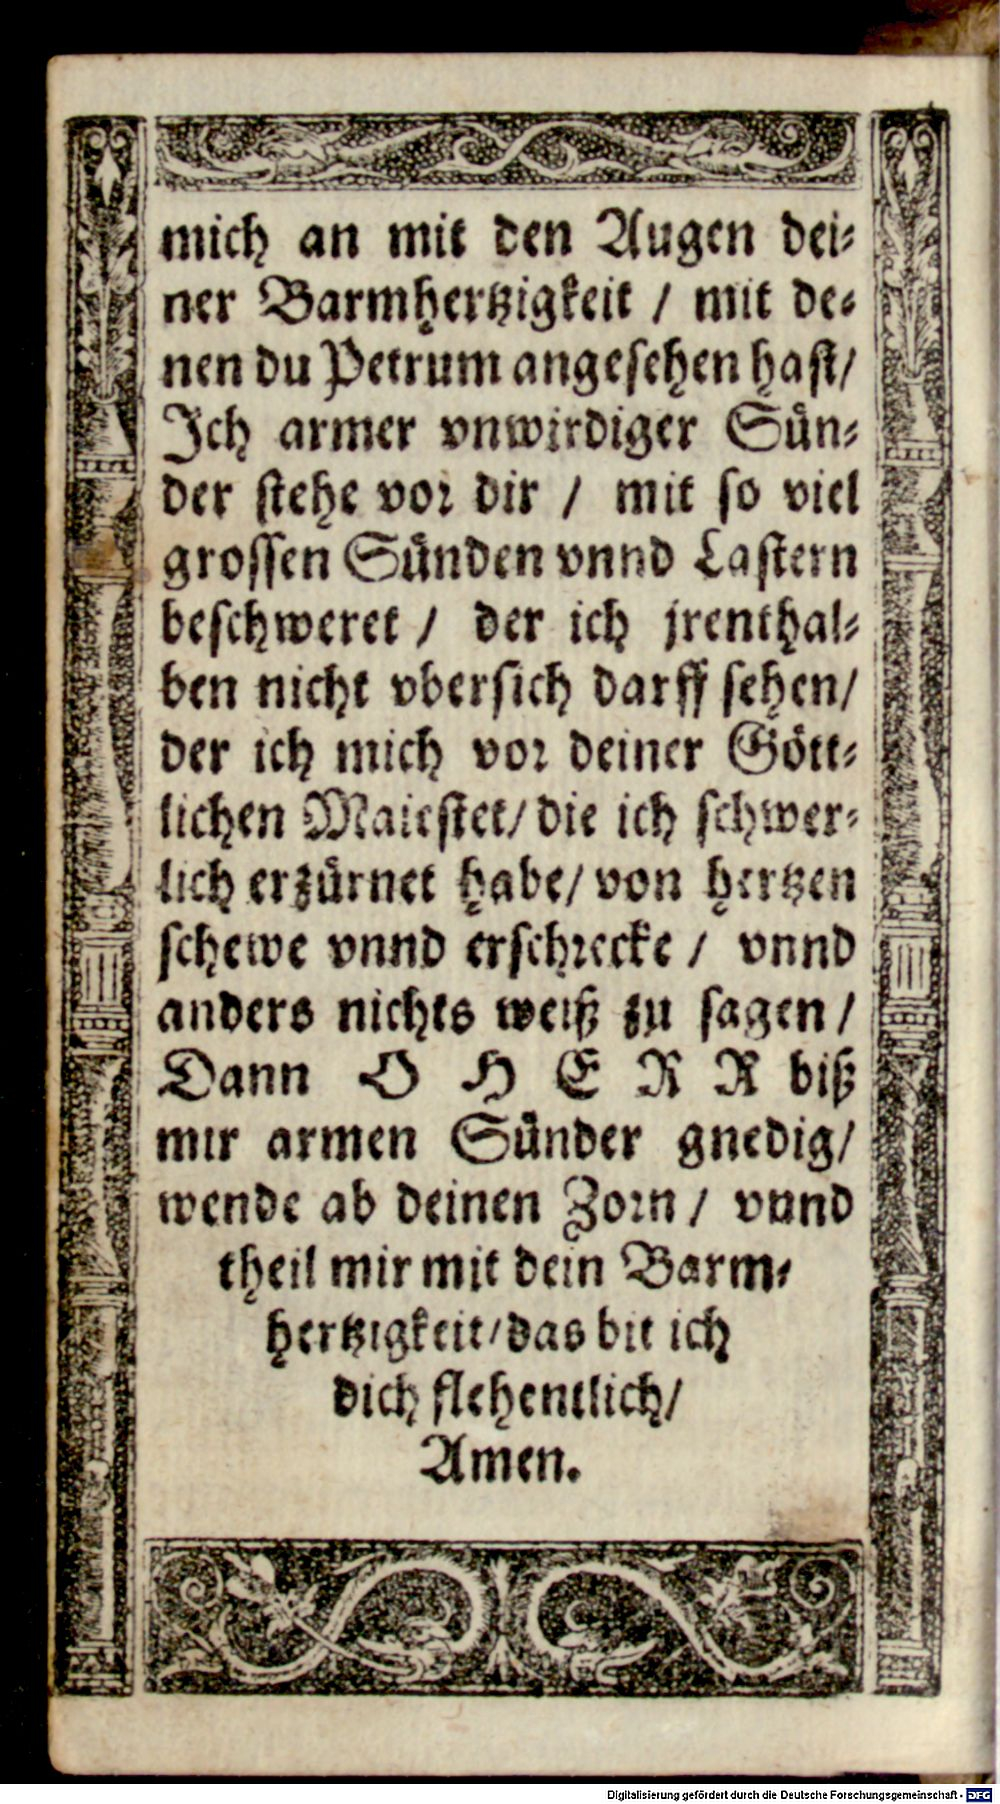 mich an mit den Augen dei⸗
ner Barmhertzigkeit / mit de⸗
nen du Petrum angesehen hast/
Ich armer vnwirdiger Sün⸗
der stehe vor dir / mit so viel
grossen Sünden vnnd Lastern
beschweret / der ich jrenthal⸗
ben nicht vbersich darff sehen/
der ich mich vor deiner Gött⸗
lichen Maiestet/ die ich schwer⸗
lich erzürnet habe/ von hertzen
schewe vnnd erschrecke / vnnd
anders nichts weiß zu sagen/
Dann O H E R R biß
mir armen Sünder gnedig/
wende ab deinen Zorn/ vnnd
theil mir mit dein Barm⸗
hertzigkeit/das bit ich
dich flehentlich/
Amen.
Digitalisierung gefördert durch die Deutsche Forschungsgemeinschaft - DFG